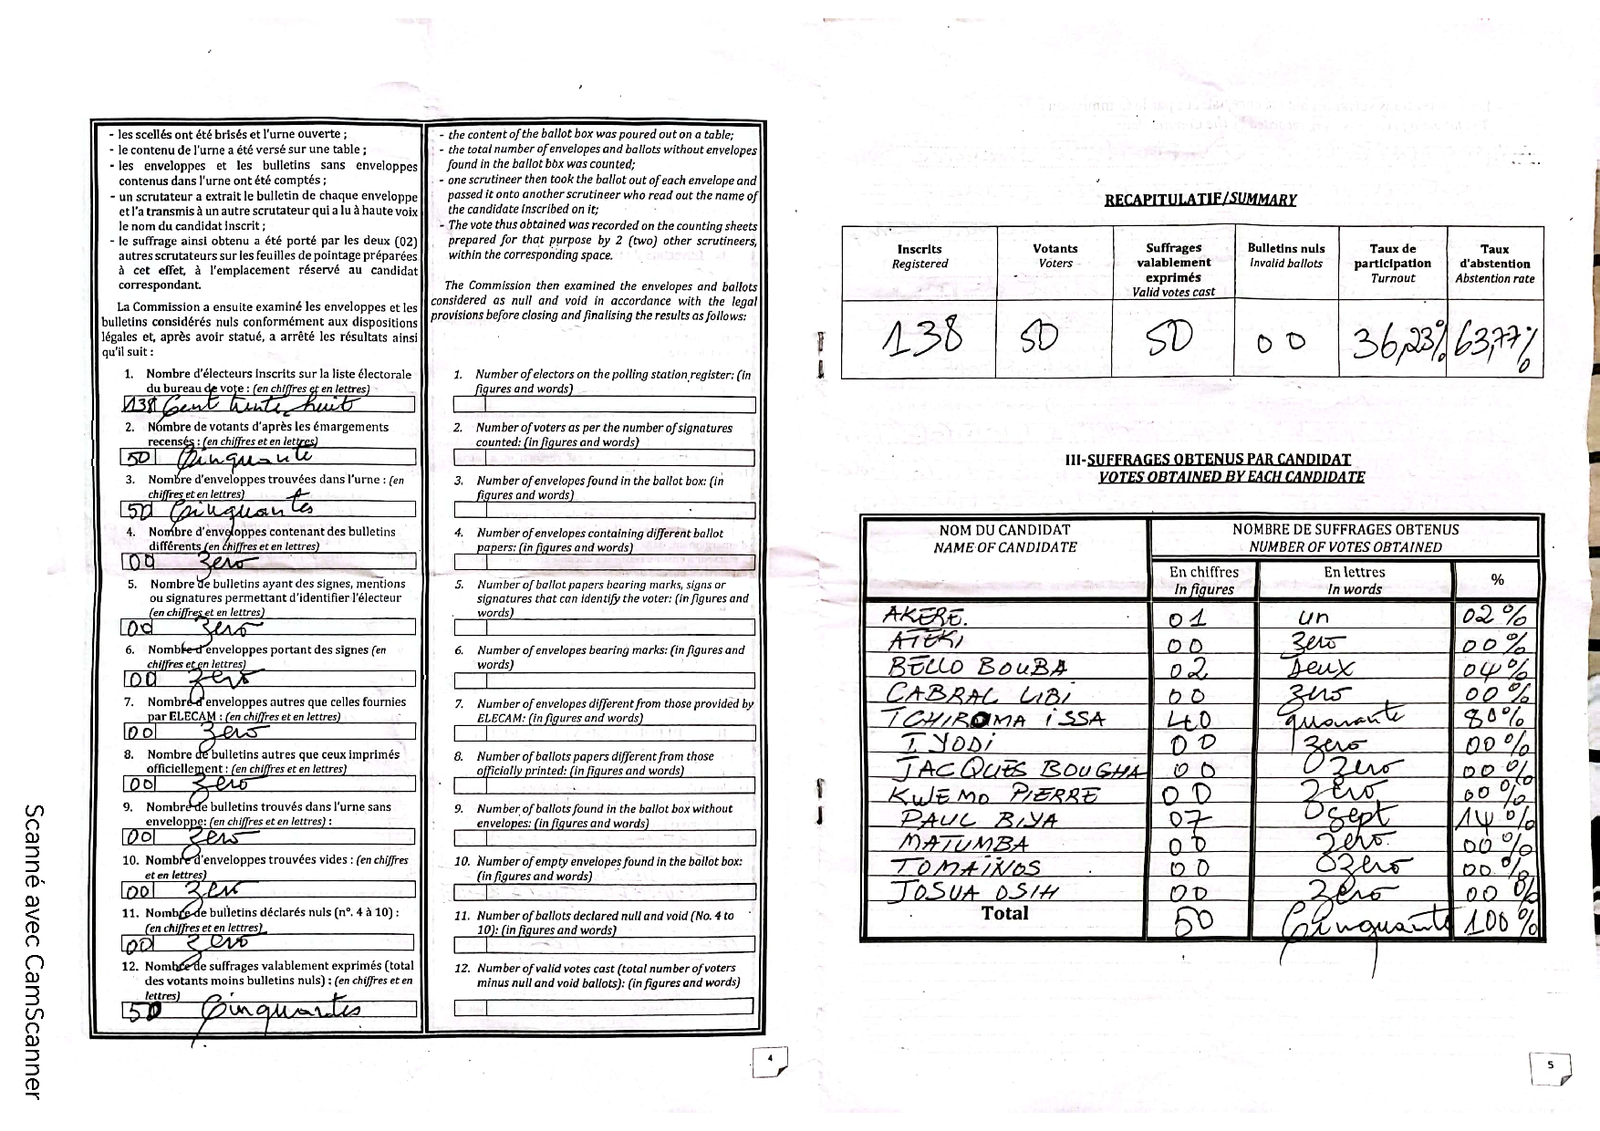 - les scellés ont été brisés et l'urne ouverte ;
- le contenu de l'urne a été versé sur une table ;
- les enveloppes et les bulletins sans enveloppes
contenus dans l'urne ont été comptés ;
- un scrutateur a extrait le bulletin de chaque enveloppe
et l'a transmis à un autre scrutateur qui a lu à haute voix
le nom du candidat inscrit ;
- le suffrage ainsi obtenu a été porté par les deux (02)
autres scrutateurs sur les feuilles de pointage préparées
à cet effet, à l'emplacement réservé au candidat
correspondant.
La Commission a ensuite examiné les enveloppes et les
bulletins considérés nuls conformément aux dispositions
légales et, après avoir statué, a arrêté les résultats ainsi
qu'il suit :
1. Nombre d'électeurs inscrits sur la liste électorale
du bureau de vote : (en chiffres et en lettres)
138 Cent trente huit
2. Nombre de votants d'après les émargements
recensés : (en chiffres et en lettres)
50 Cinquante
3. Nombre d'enveloppes trouvées dans l'urne : (en
chiffres et en lettres)
50 Cinquantes
4. Nombre d'enveloppes contenant des bulletins
différents (en chiffres et en lettres)
00 zero
5. Nombre de bulletins ayant des signes, mentions
ou signatures permettant d'identifier l'électeur
(en chiffres et en lettres)
00 zero
6. Nombre d'enveloppes portant des signes (en
chiffres et en lettres)
00 zero
7. Nombre d'enveloppes autres que celles fournies
par ELECAM : (en chiffres et en lettres)
00 zero
8. Nombre de bulletins autres que ceux imprimés
officiellement : (en chiffres et en lettres)
00 zero
9. Nombre de bulletins trouvés dans l'urne sans
enveloppe: (en chiffres et en lettres) :
00 zero
10. Nombre d'enveloppes trouvées vides : (en chiffres
et en lettres)
00 zero
11. Nombre de bulletins déclarés nuls (n°. 4 à 10) :
(en chiffres et en lettres)
00 zero
12. Nombre de suffrages valablement exprimés (total
des votants moins bulletins nuls) : (en chiffres et en
lettres)
50 Cinquantes
- the content of the ballot box was poured out on a table;
- the total number of envelopes and ballots without envelopes
found in the ballot box was counted;
- one scrutineer then took the ballot out of each envelope and
passed it onto another scrutineer who read out the name of
the candidate inscribed on it;
- The vote thus obtained was recorded on the counting sheets
prepared for that purpose by 2 (two) other scrutineers,
within the corresponding space.
The Commission then examined the envelopes and ballots
considered as null and void in accordance with the legal
provisions before closing and finalising the results as follows:
1. Number of electors on the polling station register: (in
figures and words)
2. Number of voters as per the number of signatures
counted: (in figures and words)
3. Number of envelopes found in the ballot box: (in
figures and words)
4. Number of envelopes containing different ballot
papers: (in figures and words)
5. Number of ballot papers bearing marks, signs or
signatures that can identify the voter: (in figures and
words)
6. Number of envelopes bearing marks: (in figures and
words)
7. Number of envelopes different from those provided by
ELECAM: (in figures and words)
8. Number of ballots papers different from those
officially printed: (in figures and words)
9. Number of ballots found in the ballot box without
envelopes: (in figures and words)
10. Number of empty envelopes found in the ballot box:
(in figures and words)
11. Number of ballots declared null and void (No. 4 to
10): (in figures and words)
12. Number of valid votes cast (total number of voters
minus null and void ballots): (in figures and words)
4
RECAPITULATIF/SUMMARY
Inscrits Registered | Votants Voters | Suffrages valablement exprimés Valid votes cast | Bulletins nuls Invalid ballots | Taux de participation Turnout | Taux d'abstention Abstention rate
138 50 50 00 36,23% 63,77%
III-SUFFRAGES OBTENUS PAR CANDIDAT
VOTES OBTAINED BY EACH CANDIDATE
NOM DU CANDIDAT NOMBRE DE SUFFRAGES OBTENUS
NAME OF CANDIDATE NUMBER OF VOTES OBTAINED
En chiffres En lettres %
In figures In words
AKERE. 01 un 02%
ATEKI 00 zero 00%
BELLO BOUBA 02 Deux 04%
CABRAL LIBI 00 zero 00%
TCHIROMA ISSA 40 quarante 80%
T. YODI 00 zero 00%
JACQUES BOUGHA 00 zero 00%
KWEMO PIERRE 00 zero 00%
PAUL BIYA 07 sept 14%
MATUMBA 00 zero. 00%
TOMAÏNOS 00 zero 00%
JOSUA OSIH 00 zero 00%
Total 50 Cinquante 100%
5
Scanné avec CamScanner